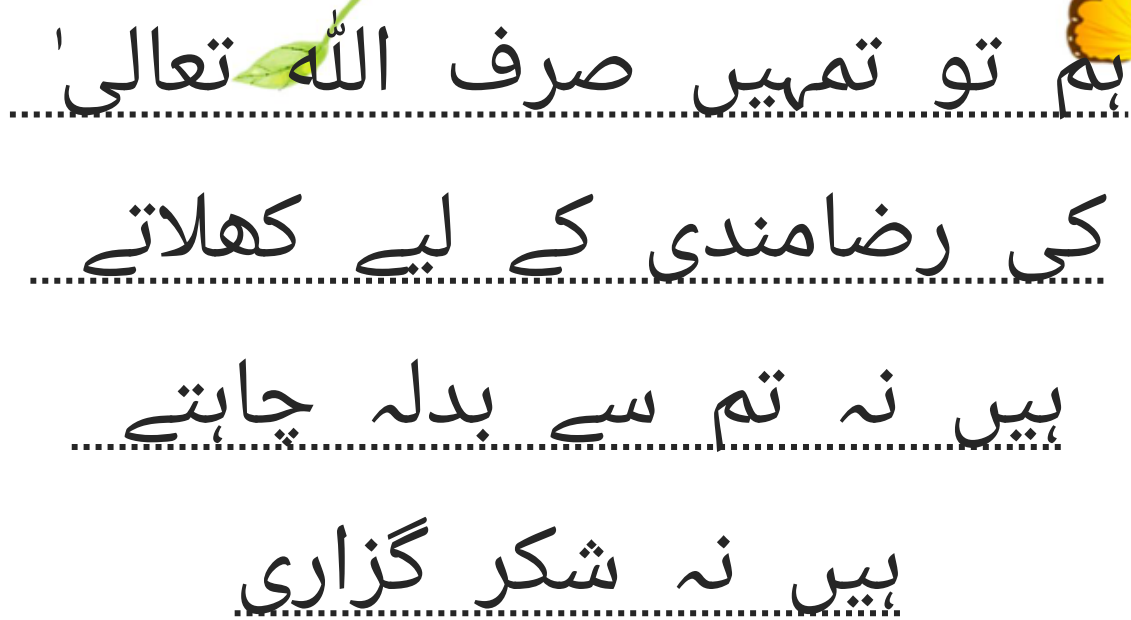 ہم تو تمہیں صرف اللہ تعالیٰ
کی رضامندی کے لیے کھلاتے
ہیں نہ تم سے بدلہ چاہتے
ہیں نہ شکر گزاری